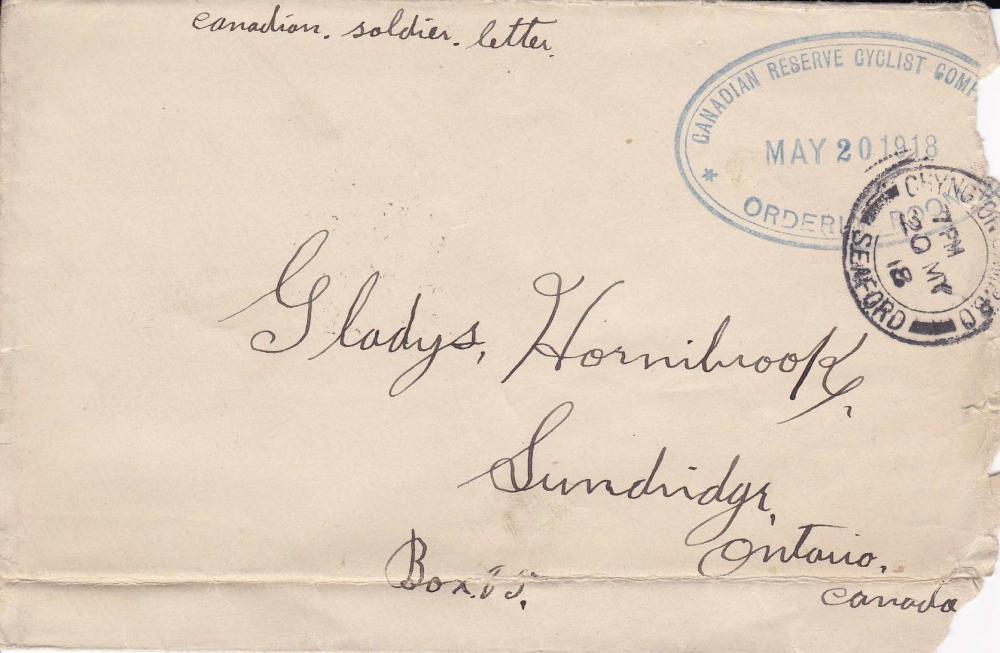 canadian. soldier. letter.
CANADIAN RESERVE CYCLIST COMP
MAY 20 1918
* ORDERLY ROOM
CHYNGTON
7 PM
20 MY
18
SEAFORD
Gladys, Hornibrook,
Sundridge,
Ontario.
Box.
canada